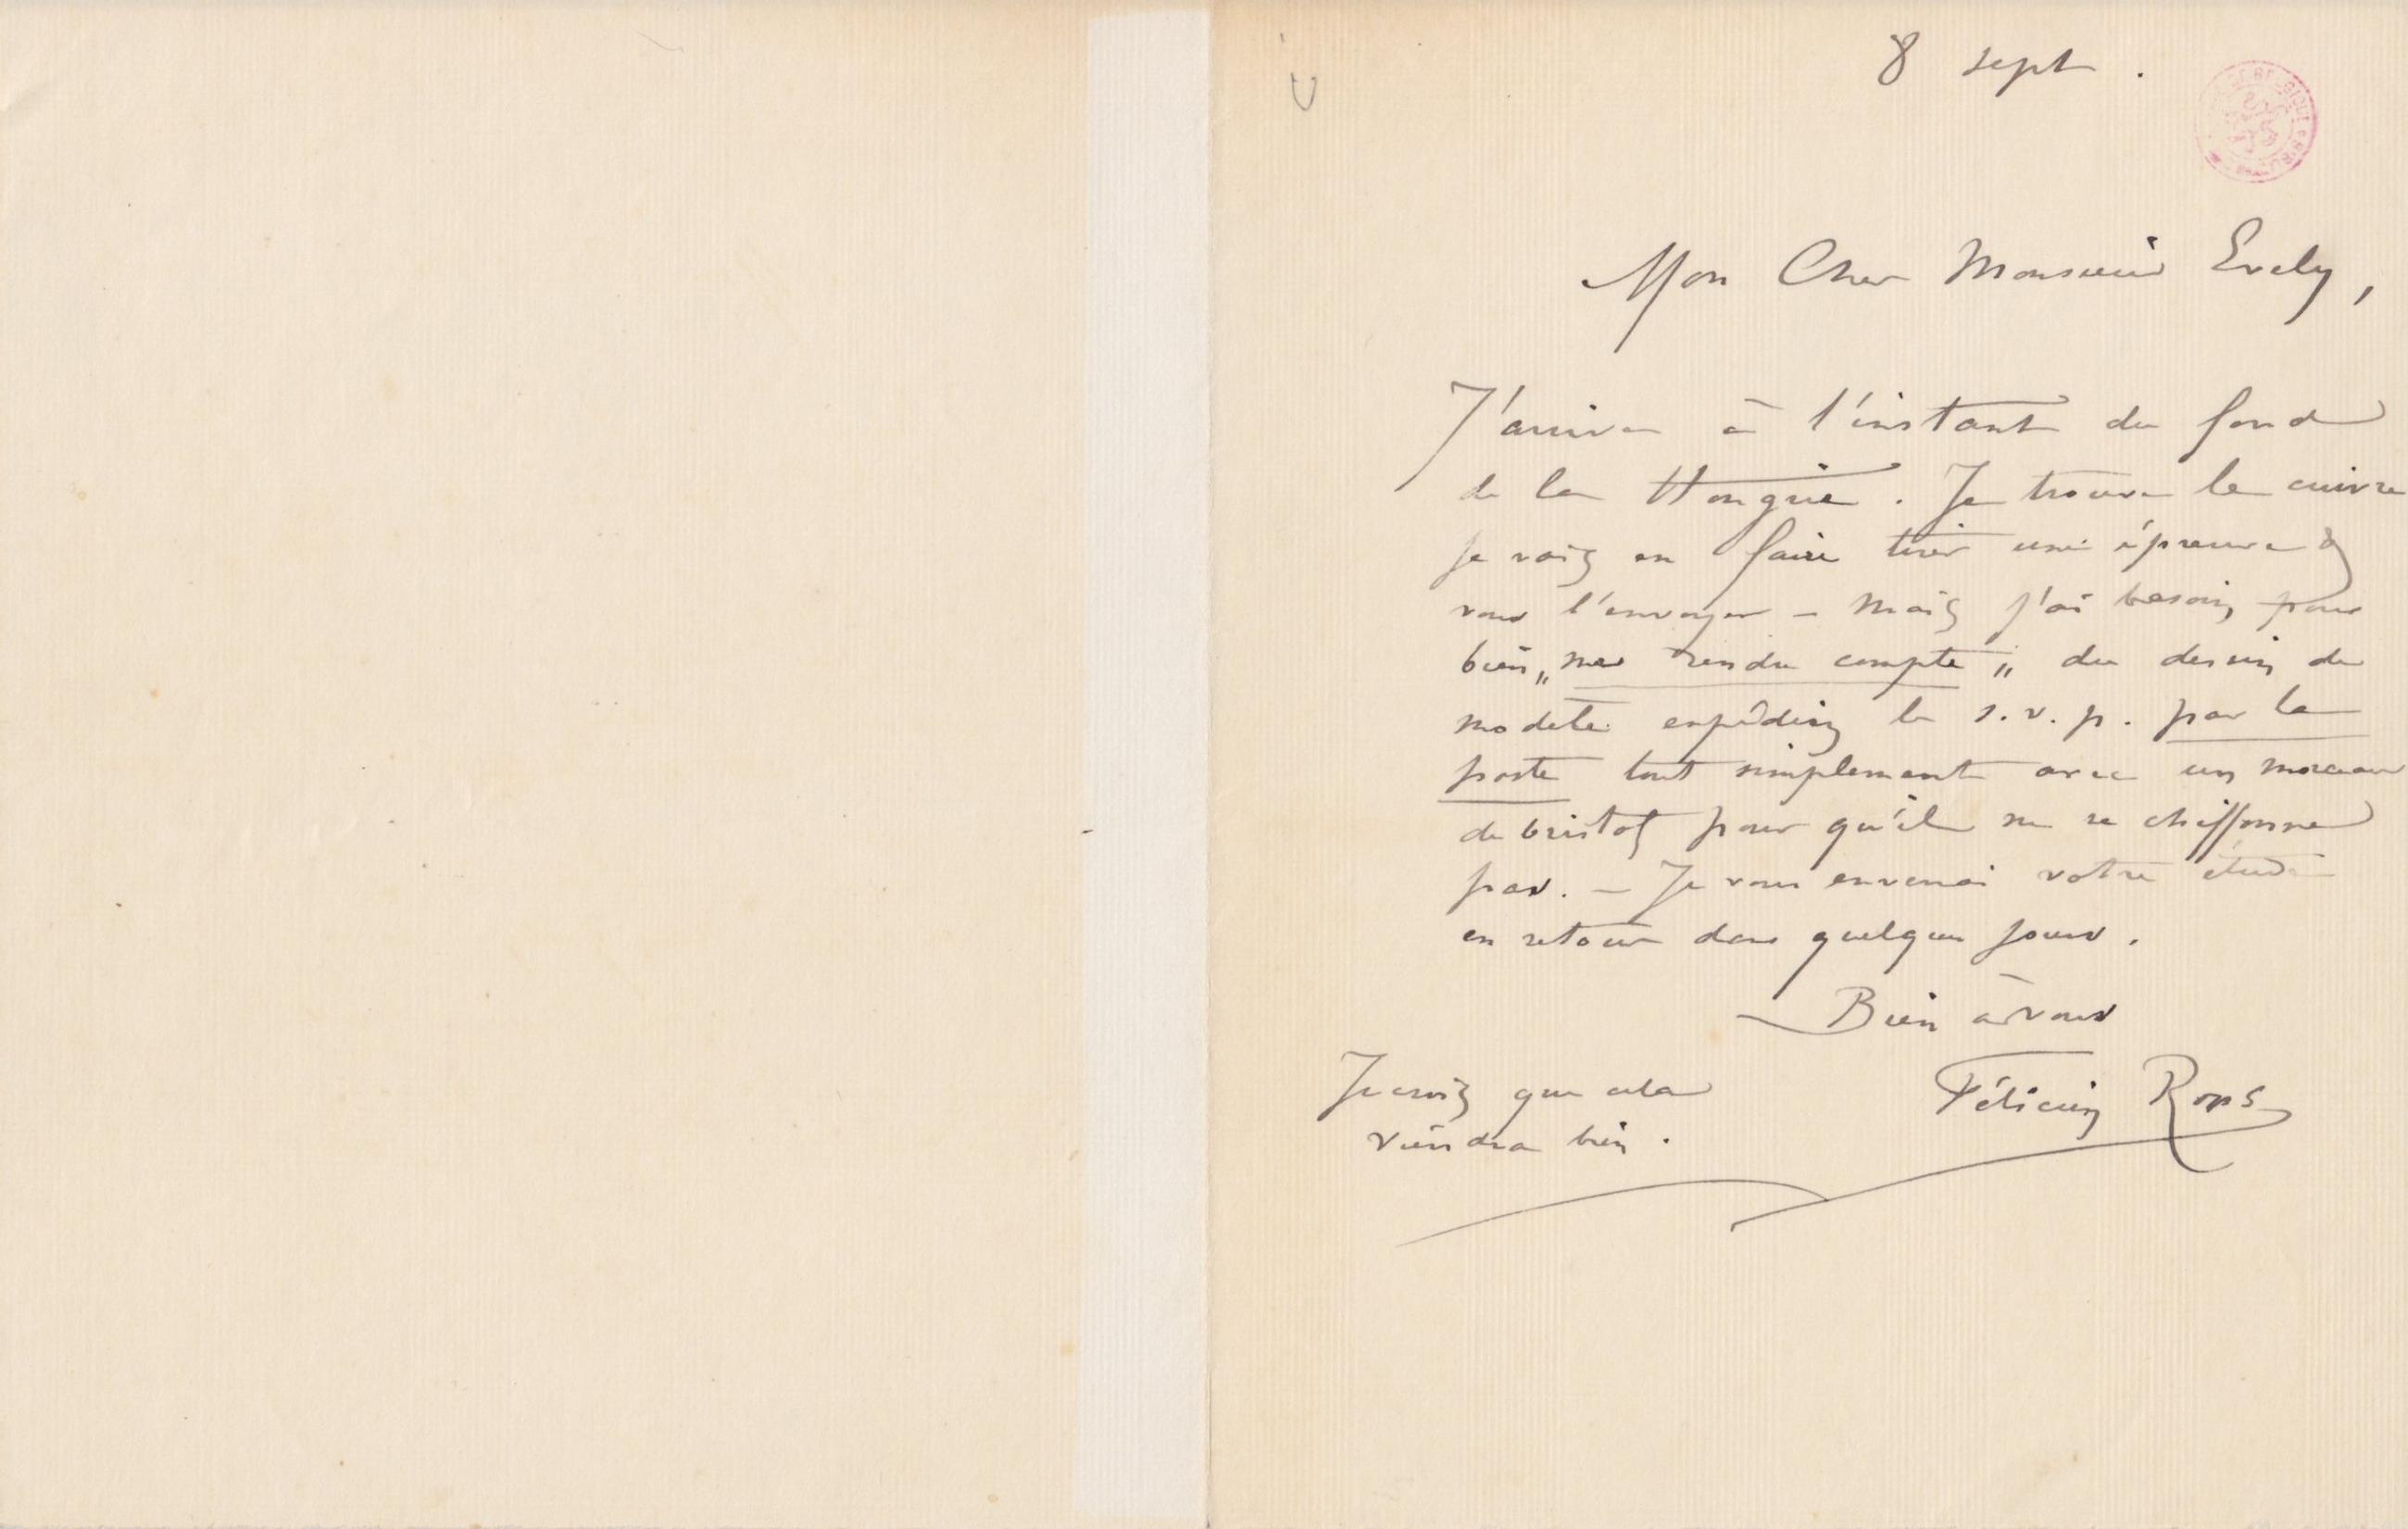 8 sept.
Mon Cher Monsieur Evely,
J'arrive à l'instant du fond
de la Hongrie. Je trouve le cuivre
je vais en faire tirer une épreuve &
vous l'envoyer – Mais j'ai besoin pour
bien „me rendre compte„ du dessin du
modèle expédiez le s.v.p. par la
poste tout simplement avec un morceau
de bristol pour qu'il ne se chiffonne
pas. – Je vous enverrai votre étude
en retour dans quelques jours.
Bien à vous
Félicien Rops
Je crois que cela
viendra bien.
DE BELGIQUE